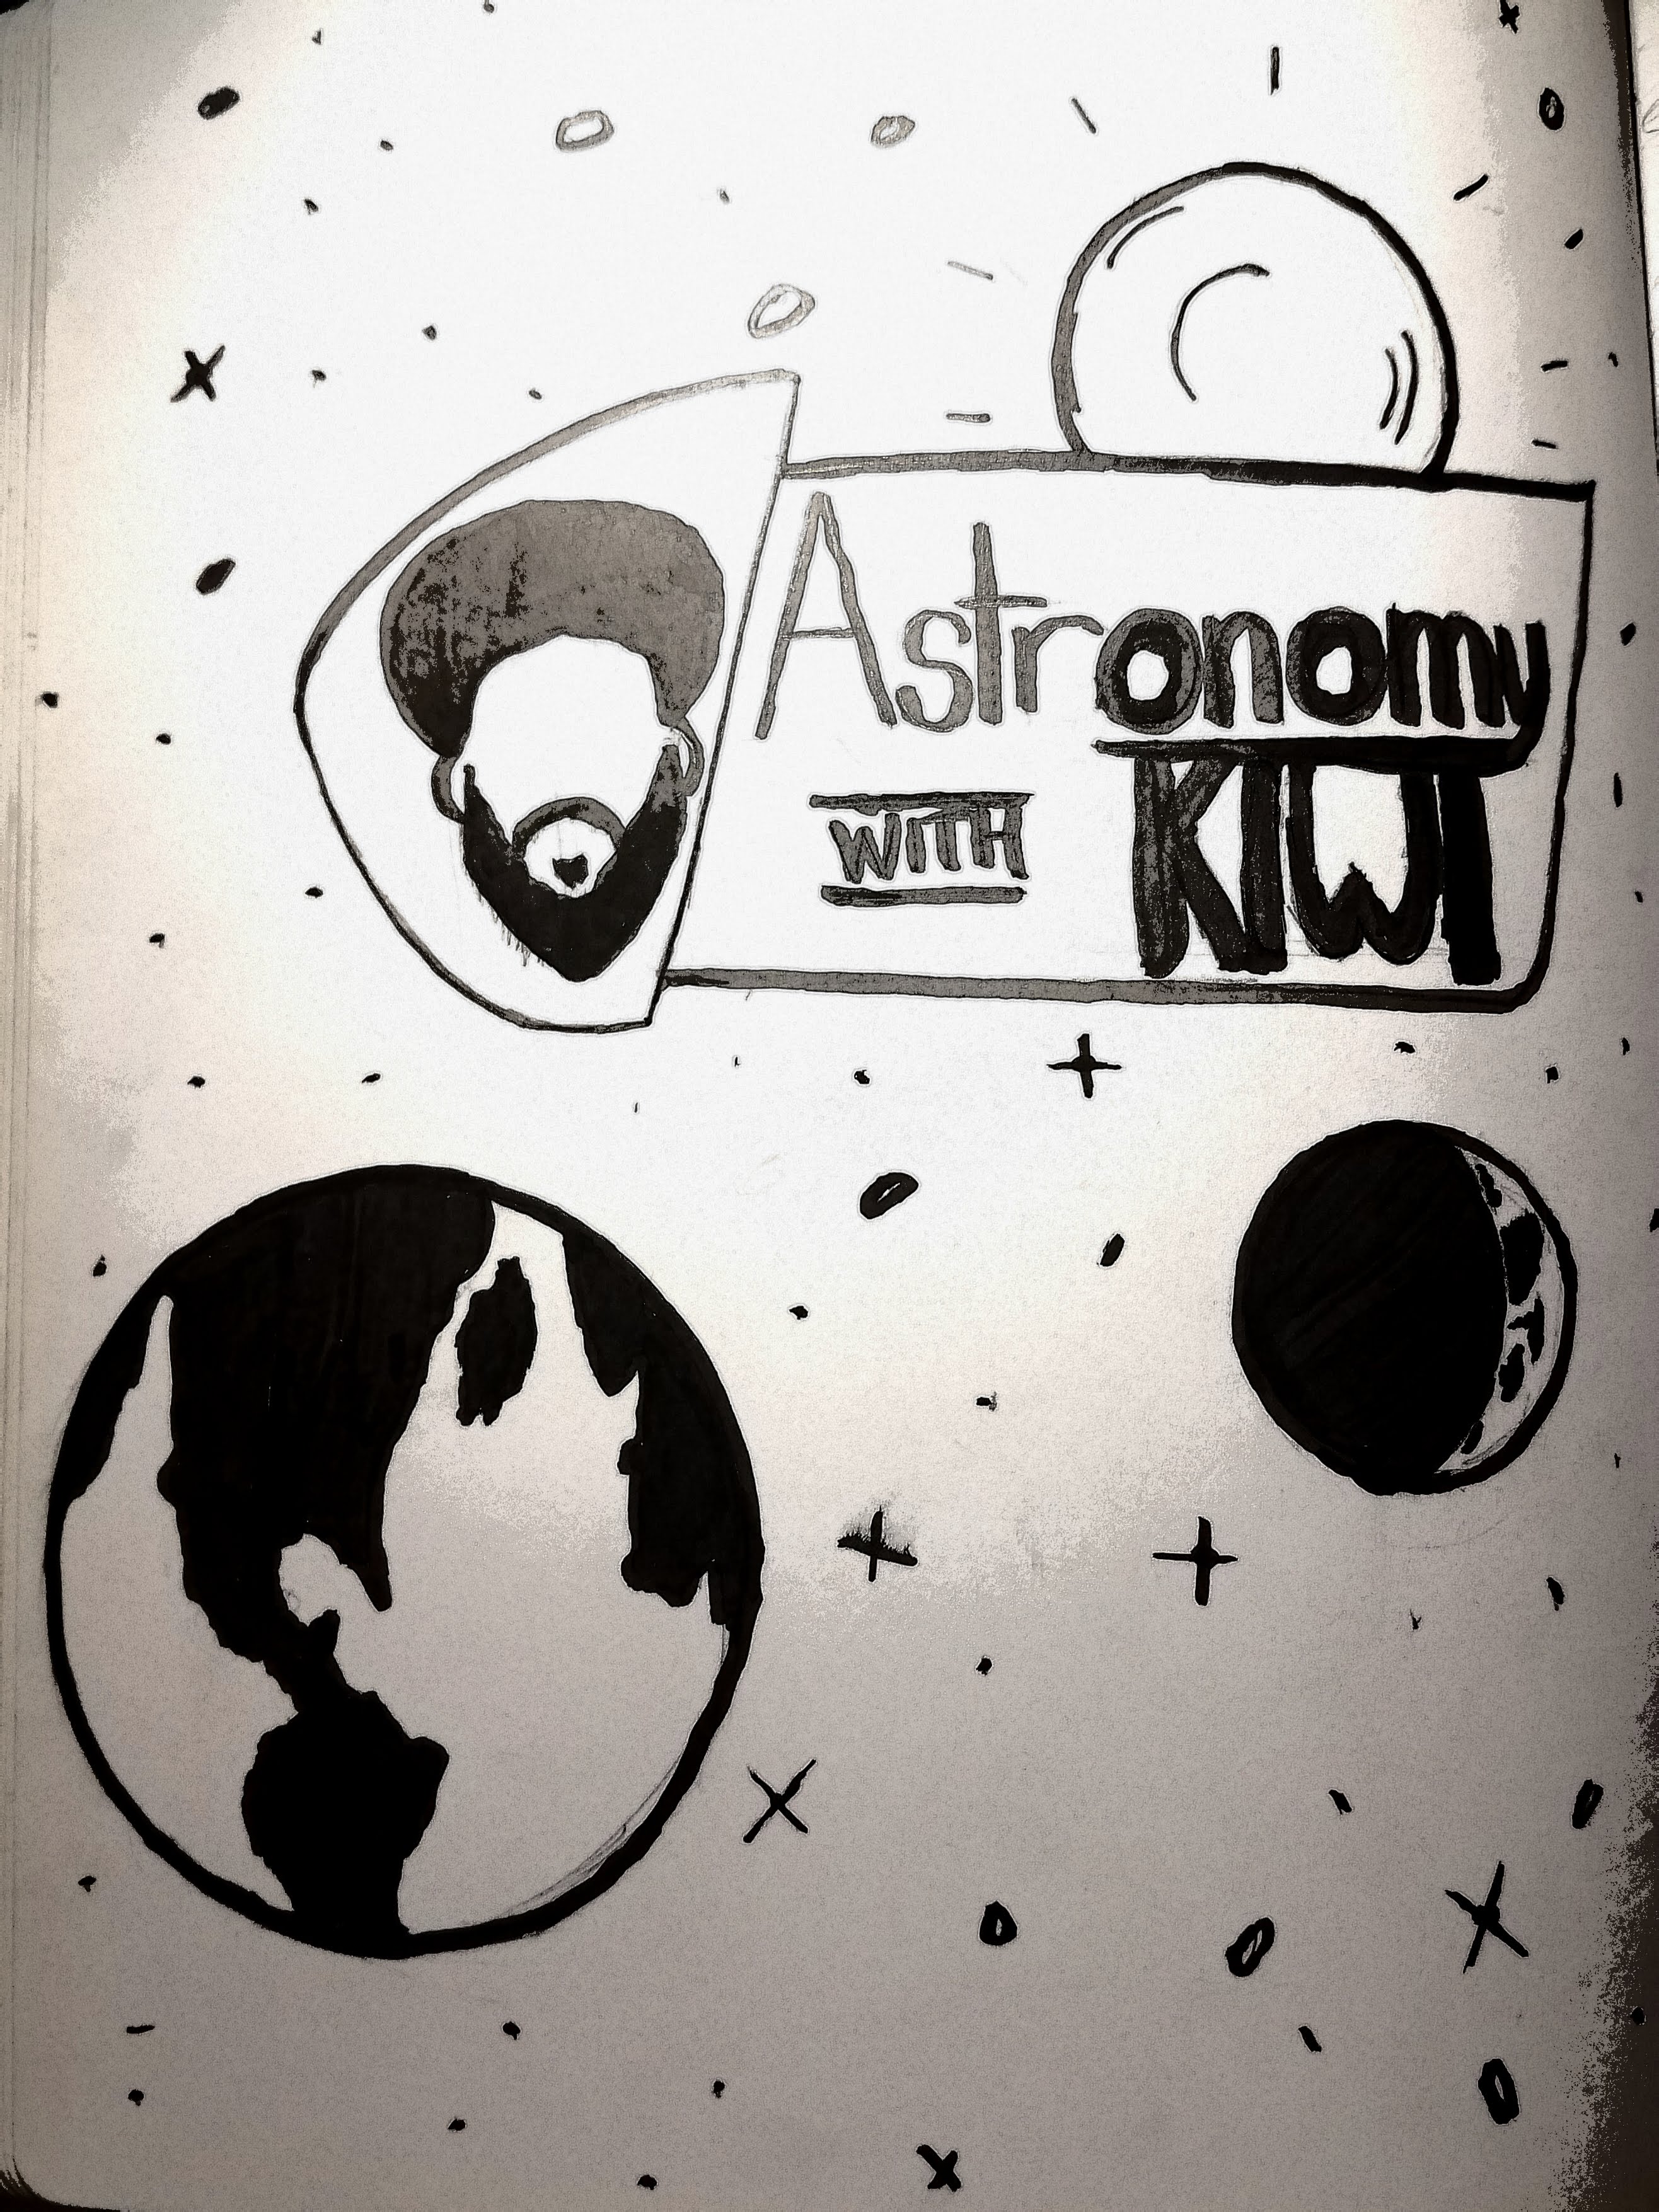 Astronomy
WITH KIWI